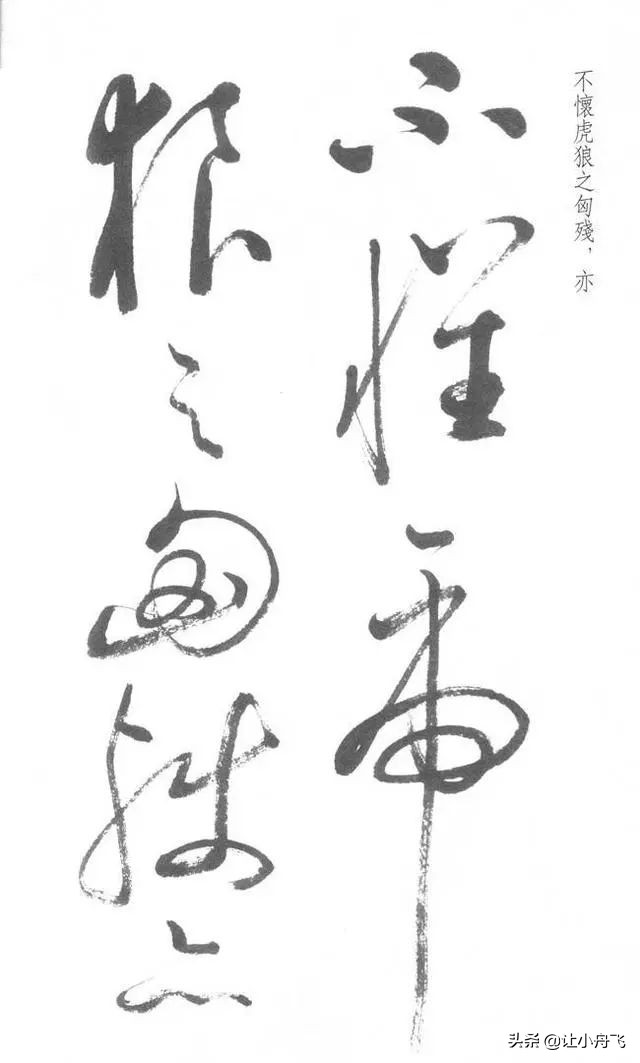 不懷虎狼之匈殘，亦
不懷虎
狼之匈殘亦
头条 @让小舟飞